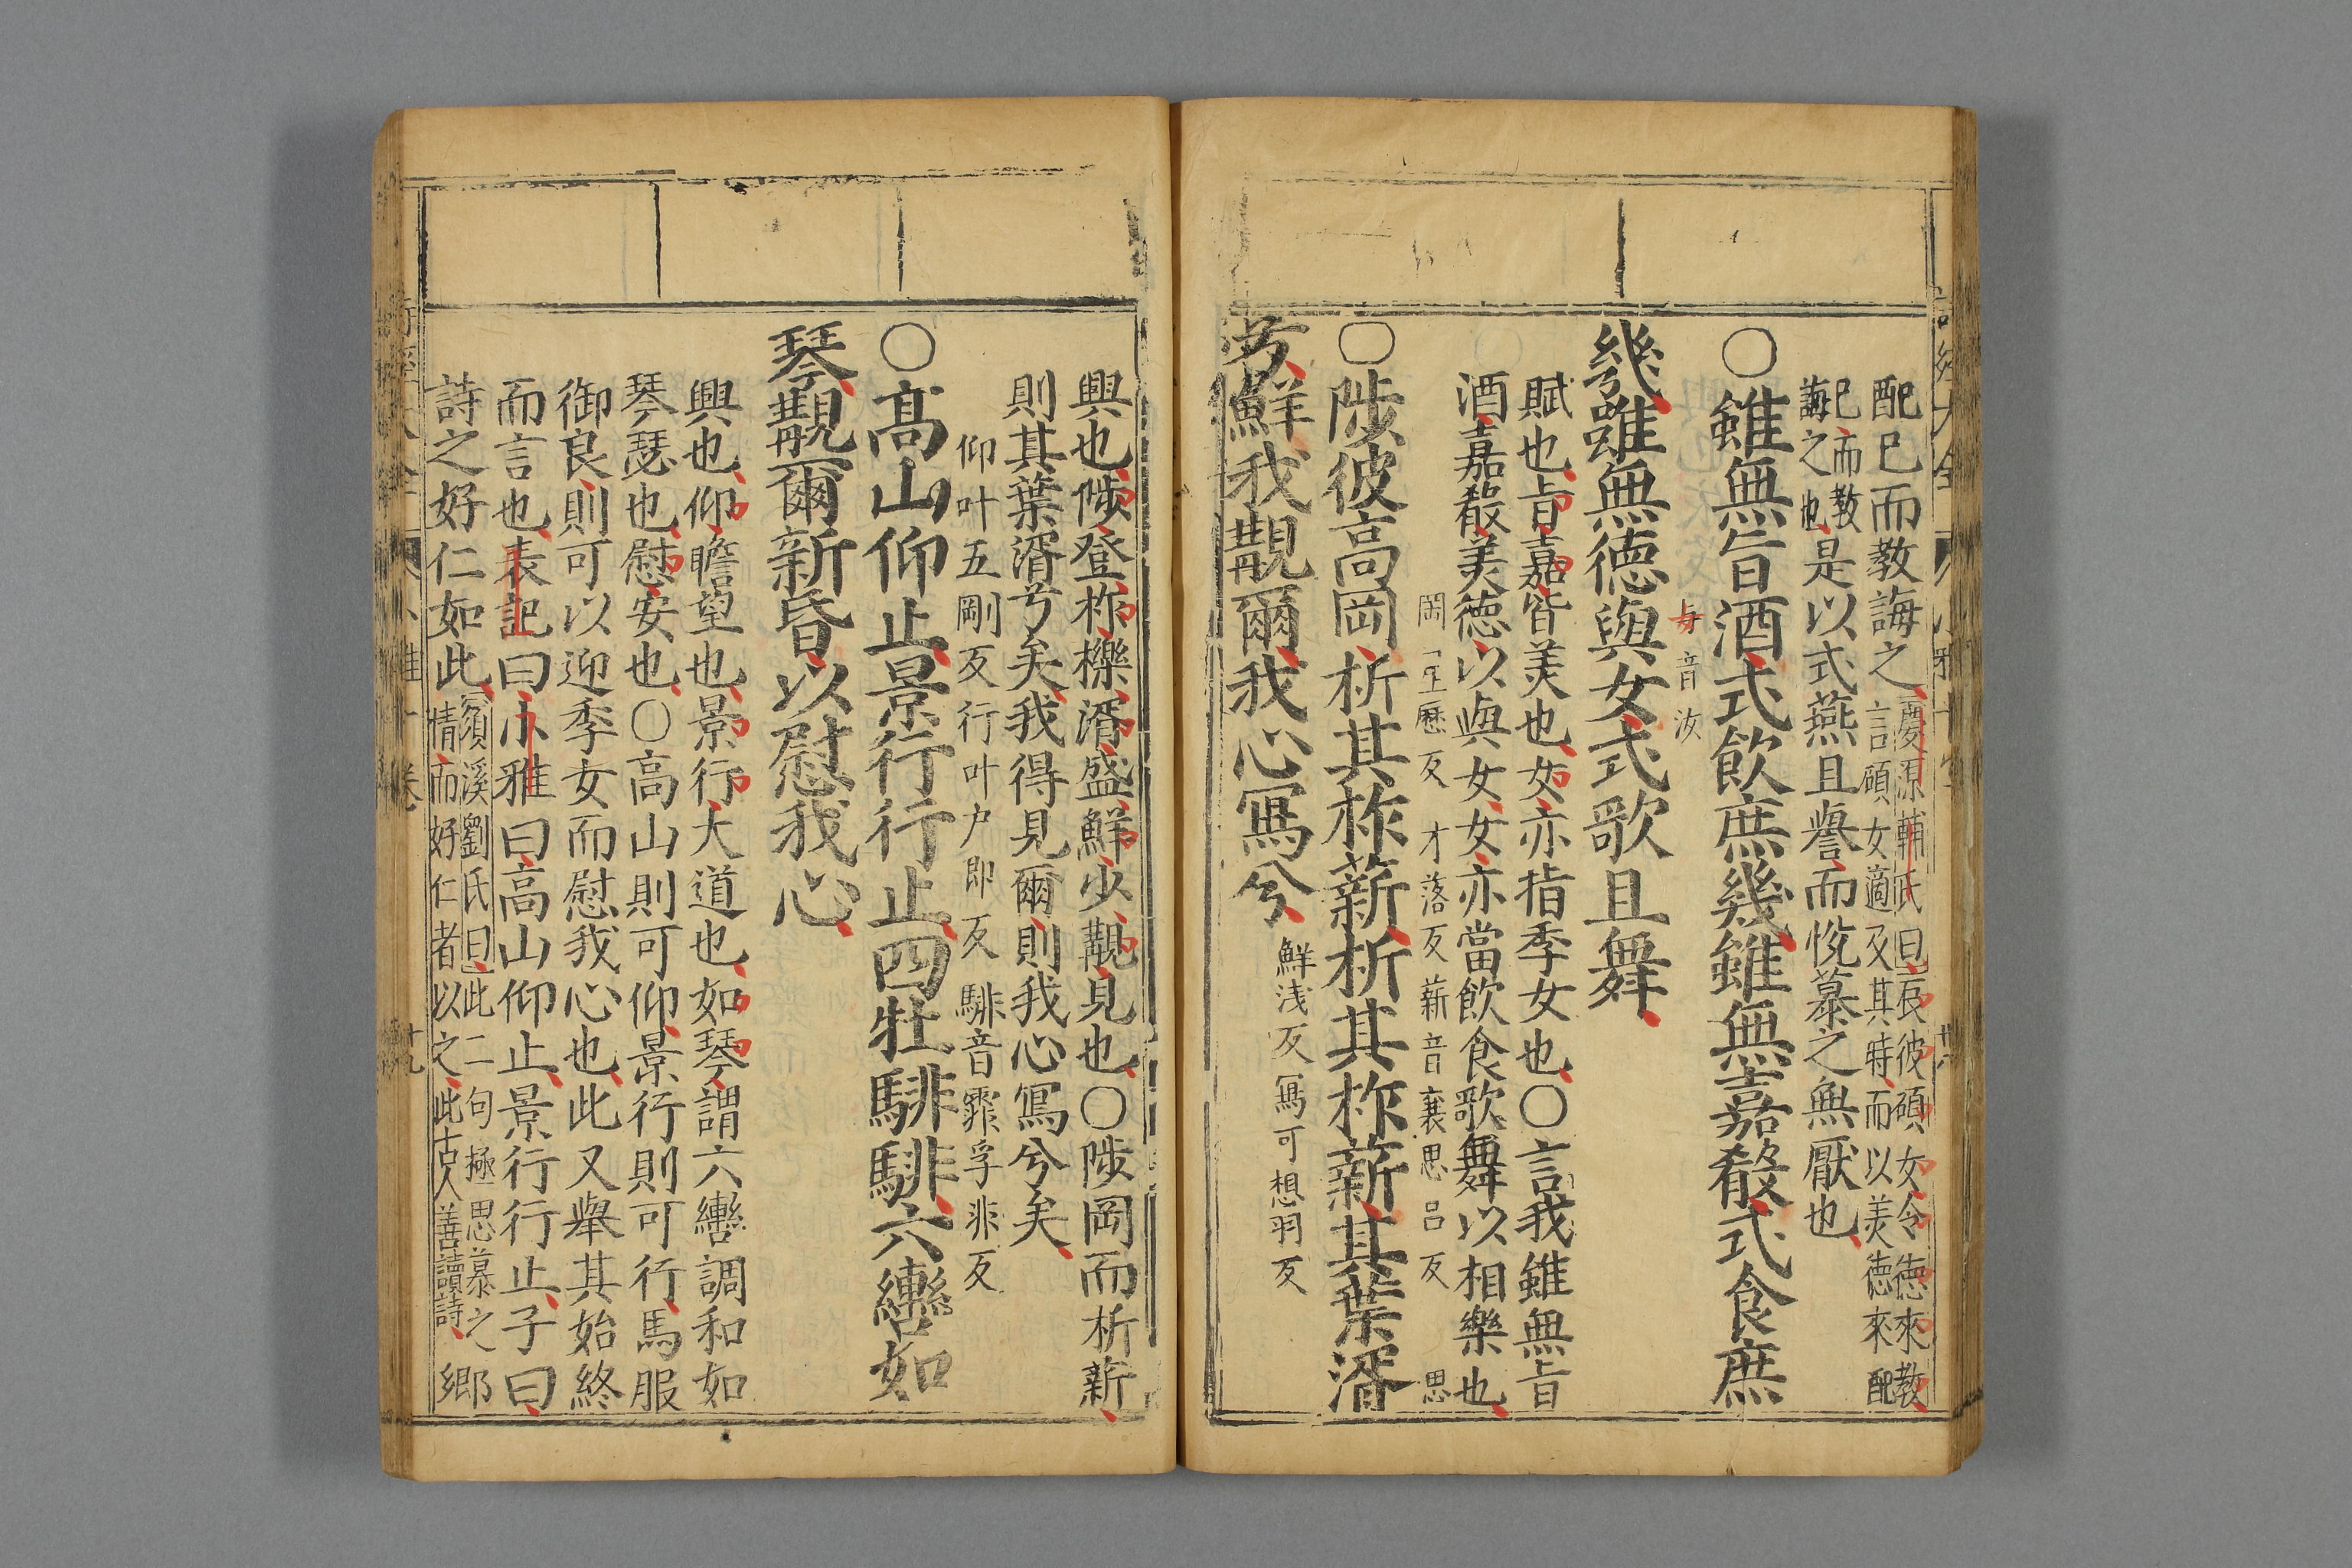 配己而教誨之慶源輔氏曰辰彼碩女令德來教
言碩女適及其時而以美德來配
己而教
誨之也是以式燕且譽而悅慕之無厭也
○雖無旨酒式飲庶幾雖無嘉殽式食庶
幾雖無德與女式歌且舞
与音汝
賦也旨嘉皆美也女亦指季女也○言我雖無旨
酒嘉殽美德以與女女亦當飲食歌舞以相樂也
○陟彼高岡析其柞薪析其柞薪其葉湑
析星歷反 才落反薪音襄思呂反 思
兮鮮我覯爾我心寫兮鮮淺反寫可想羽反
興也陟登柞櫟湑盛鮮少覯見也○陟岡而析薪
則其葉湑兮矣我得見爾則我心寫兮矣
仰叶五剛反行叶户郎反騑音霏孚非反
○高山仰止景行行止四牡騑騑六轡如
琴覯爾新昏以慰我心
興也仰瞻望也景行大道也如琴謂六轡調和如
琴瑟也慰安也○高山則可仰景行則可行馬服
御良則可以迎季女而慰我心也此又舉其始終
而言也表記曰小雅曰高山仰止景行行止子曰
詩之好仁如此須溪劉氏曰此二句極思慕之
情而好仁者以之此古人善讀詩鄉